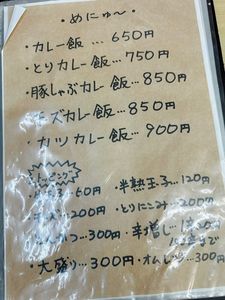 ・めにゅ〜・
・カレー飯…650円
・とりカレー飯…750円
・豚しゃぶカレー飯…850円
ーズカレー飯…850円
・カツカレー飯…900円
トッピング
50円・半熟玉子…120円
…200円・とりにこみ…200円
んかつ…300円・辛増し
まで
・大盛り…300円・オム 300円